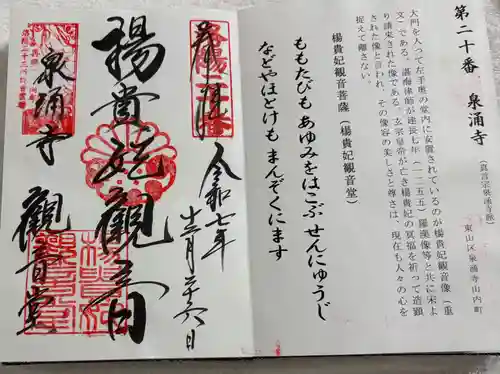 第二十番 泉涌寺
(真言宗泉涌寺派)
東山区泉涌寺山内町
大門を入って左手奥の堂内に安置されているのが楊貴妃観音像(重
文)である。湛海律師が建長七年(一二五五)羅漢像等と共に宋よ
り請来された像である。玄宗皇帝が亡き楊貴妃の冥福を祈って造顕
された像と言われ、その像容の美しさと尊さは、現在も人々の心を
捉えて離さない。
楊貴妃観音菩薩(楊貴妃観音堂)
ももたびも あゆみをはこぶ せんにゅうじ
などやほとけも まんぞくにます
奉拝
令和七年
十二月二十六日
楊貴妃観音
泉涌寺 観音堂